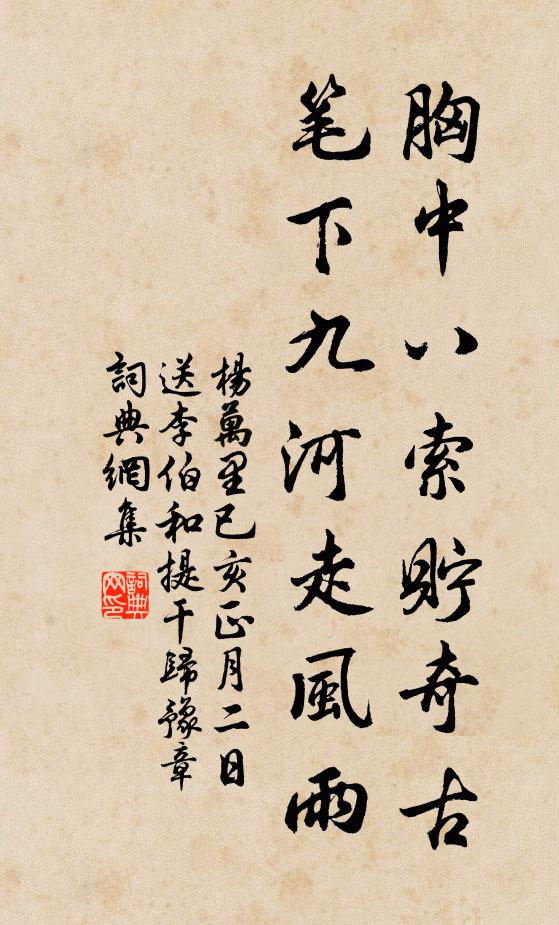 胸中八索貯奇古
笔下九河走風雨
楊萬里已亥正月二日
送李伯和提干歸豫章
詞典網集
詞典
网印